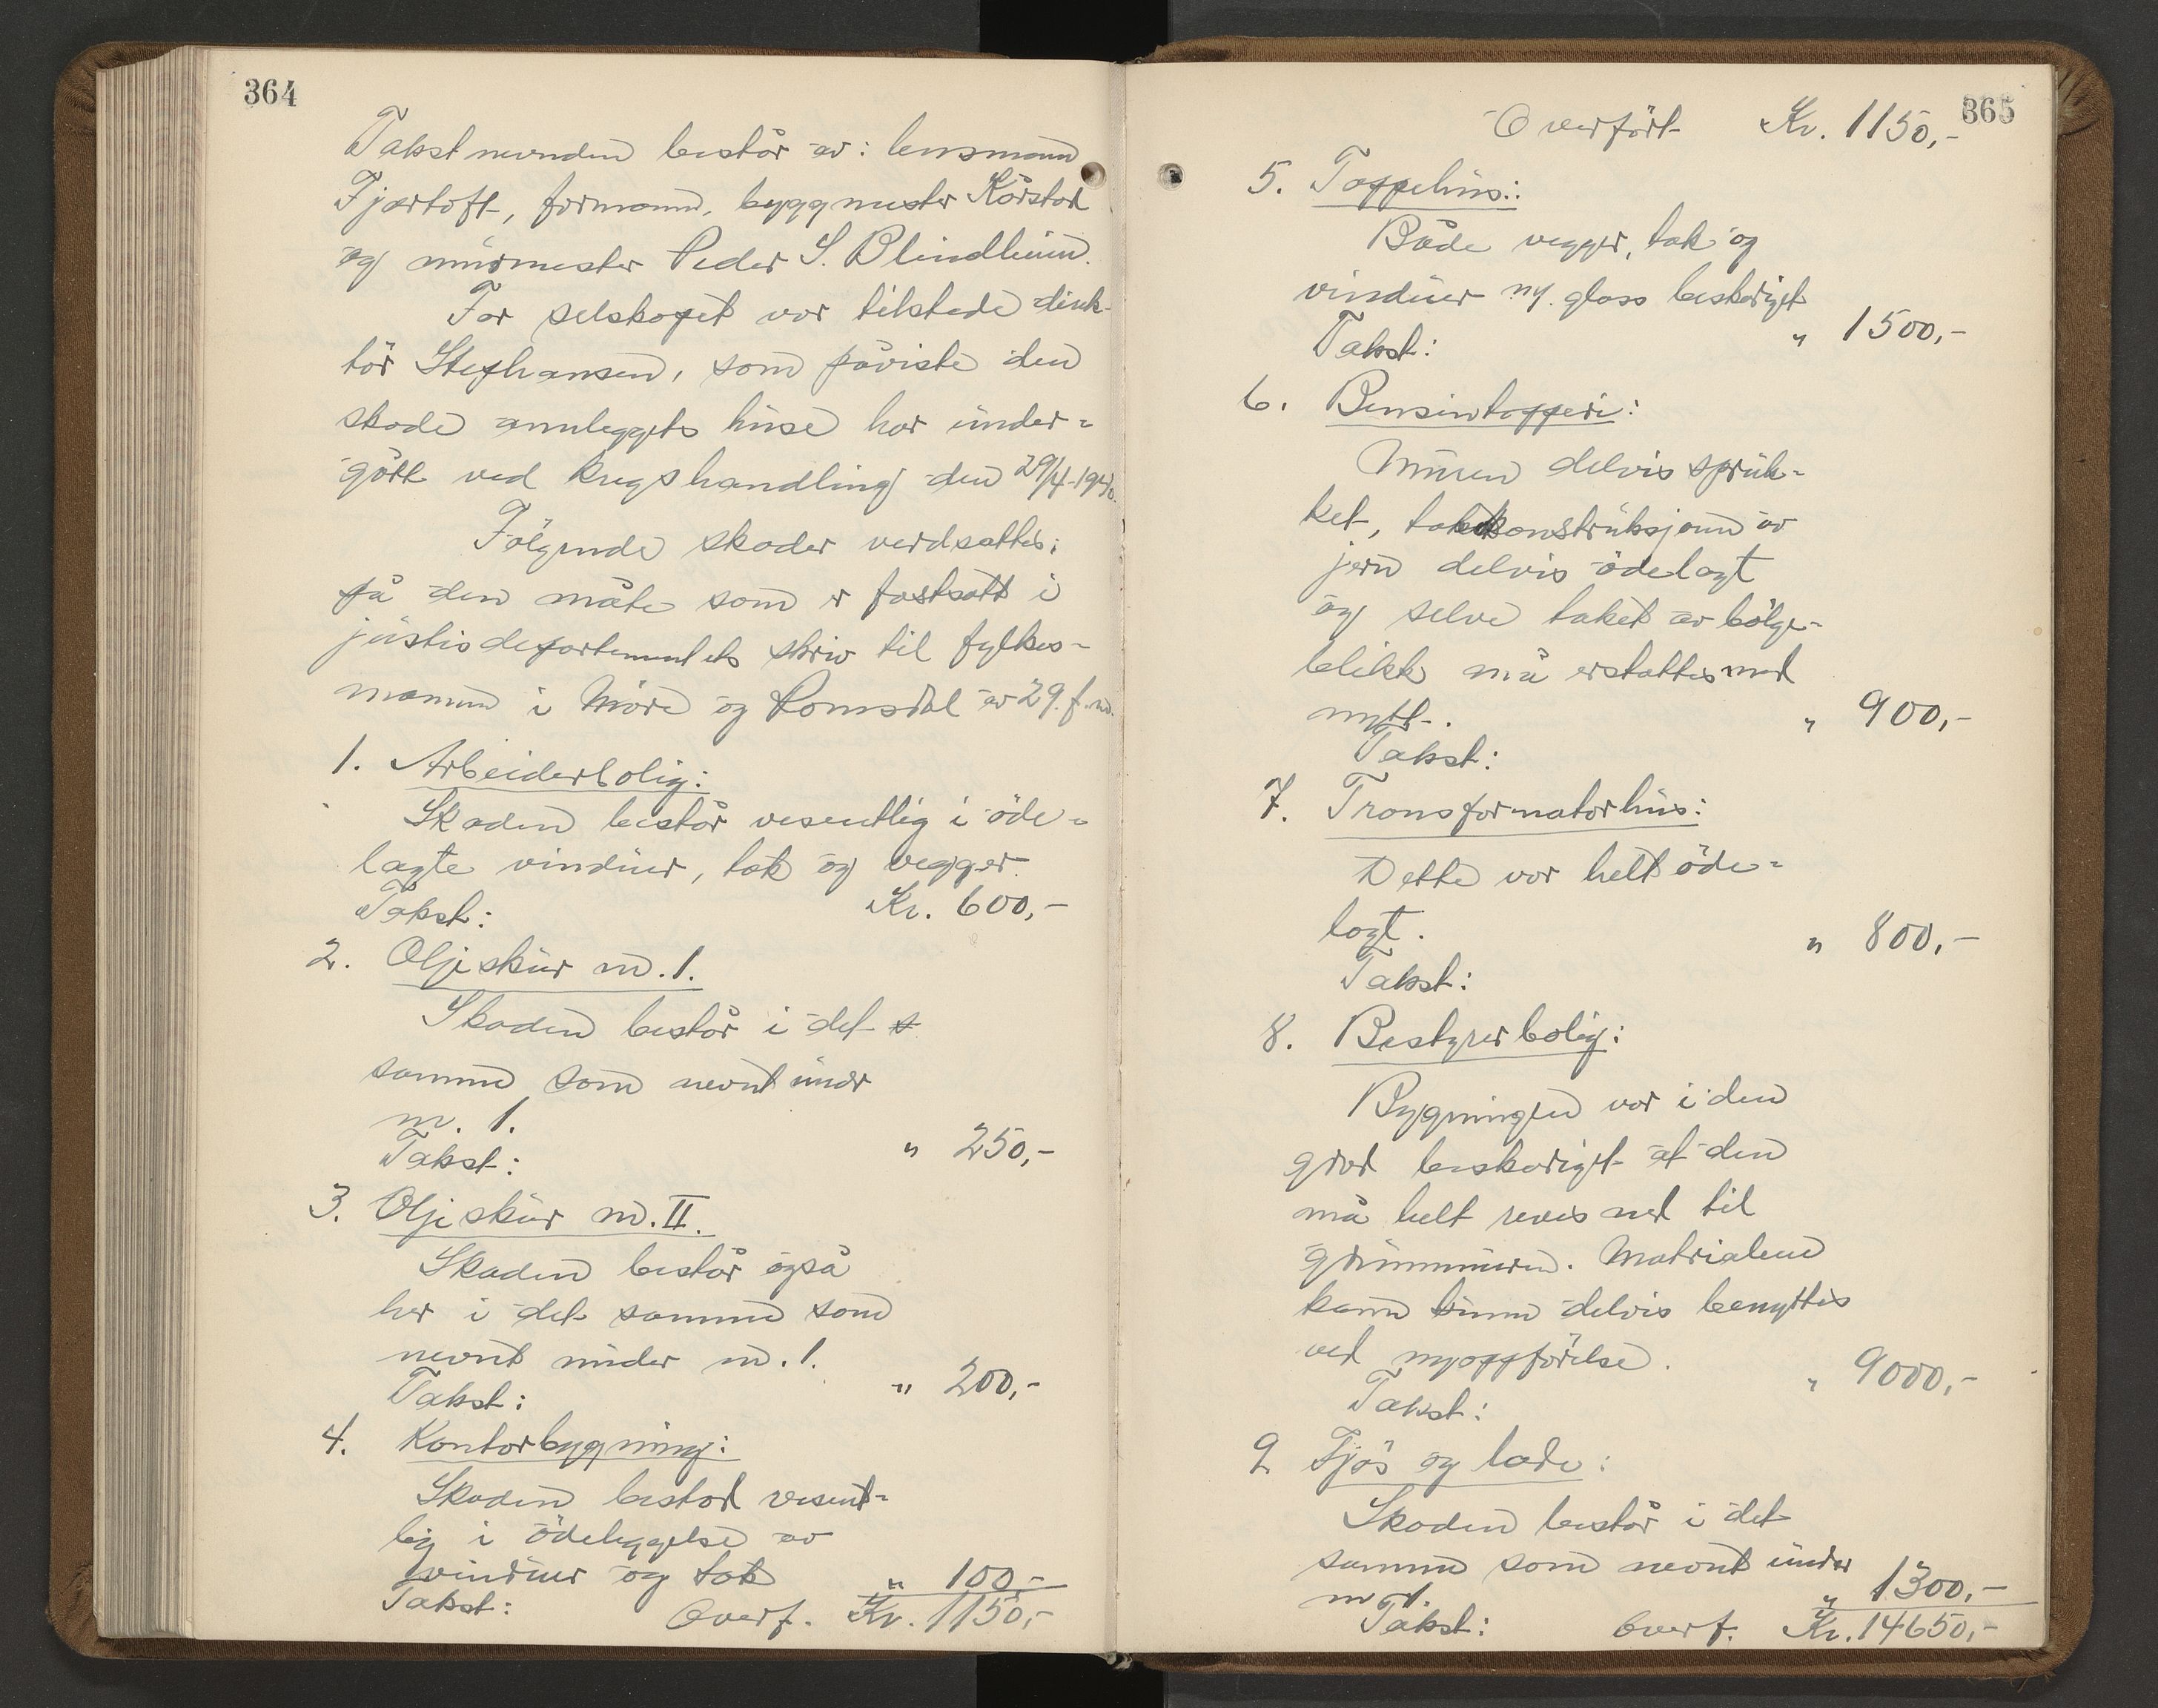 364
Takstnevnden består av: lensmann
Fjærtoft, formann, byggmester Korstad
og murmester Peder S. Blindheim.
For selskapet var tilstede direk-
tör Stephansen, som påviste den
skade annleggets huse har under-
gått ved krigshandling den 29/4-1940.
Fölgende skader verdsattes:
på den måte som er fastsatt i
justisdepartementets skriv til fylkes-
mannen i Möre og Romsdal av 29. f.m.
1. Arbeiderbolig:
Skaden består vesentlig i öde-
lagte vinduer, tak og vegger.
Takst: Kr. 600,-
2. Oljeskur nr. 1.
Skaden består i det s
samme som nevnt under
nr. 1.
Takst: " 250,-
3. Oljeskur nr. II.
Skaden består også
her i det samme som
nevnt under nr. 1.
Takst: " 200,-
4. Kontorbygning:
Skaden bestod vesent-
lig i ödeleggelse av
vinduer og tak
" 100,-
Takst: Overf. Kr. 1150,-
365
Overfört Kr. 1150,-
5. Tappehus:
Både vegger, tak og
vinduer m/ glass beskadiget
Takst: " 1500,-
6. Bensintapperi:
Muren delvis spruk-
ket, takkonstruksjonen av
jern delvis ödelagt
og selve taket av bölge-
blikk må erstattes med
nytt. " 900,-
Takst:
7. Transformatorhus:
Dette var helt öde-
lagt. " 800,-
Takst:
8. Bestyrerbolig:
Bygningen var i den
grad beskadiget at den
må helt reves ned til
grunnmuren. Matrialene
kann kunn delvis benyttes
ved nyoppförelse. " 9000,-
Takst:
9 Fjös og lade:
Skaden består i det
samme som nevnt under
nr 1. " 1300,-
Takst: Overf. Kr. 14650,-